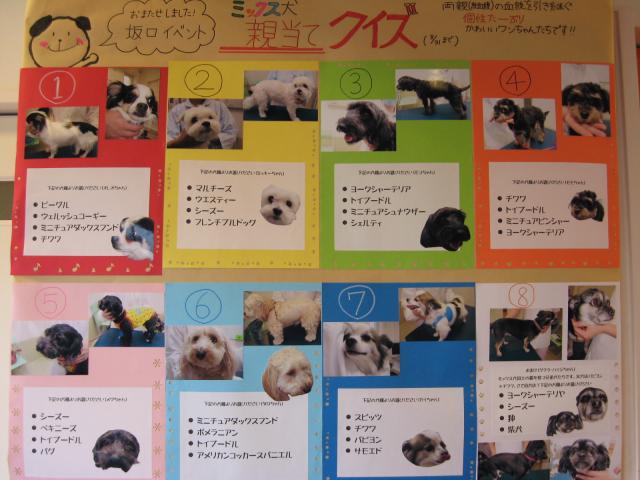 おまたせしました!
坂口イベント
ミックス犬
親当てクイズ
(3/31まで)
両親(純血種)の血統を引きつぐ
個性たーぷり
かわいいワンちゃんたちです!!
①
・ビーグル
・ウェルッシュコーギー
・ミニチュアダックスフンド
・チワワ
②
・マルチーズ
・ウエスティー
・シーズー
・フレンチブルドック
③
・ヨークシャーテリア
・トイプードル
・ミニチュアシュナウザー
・シェルティ
④
・チワワ
・トイプードル
・ミニチュアピンシャー
・ヨークシャーテリア
⑤
・シーズー
・ペキニーズ
・トイプードル
・パグ
⑥
・ミニチュアダックスフンド
・ポメラニアン
・トイプードル
・アメリカンコッカースパニエル
⑦
・スピッツ
・チワワ
・パピヨン
・サモエド
⑧
・ヨークシャーテリヤ
・シーズー
・狆
・柴犬